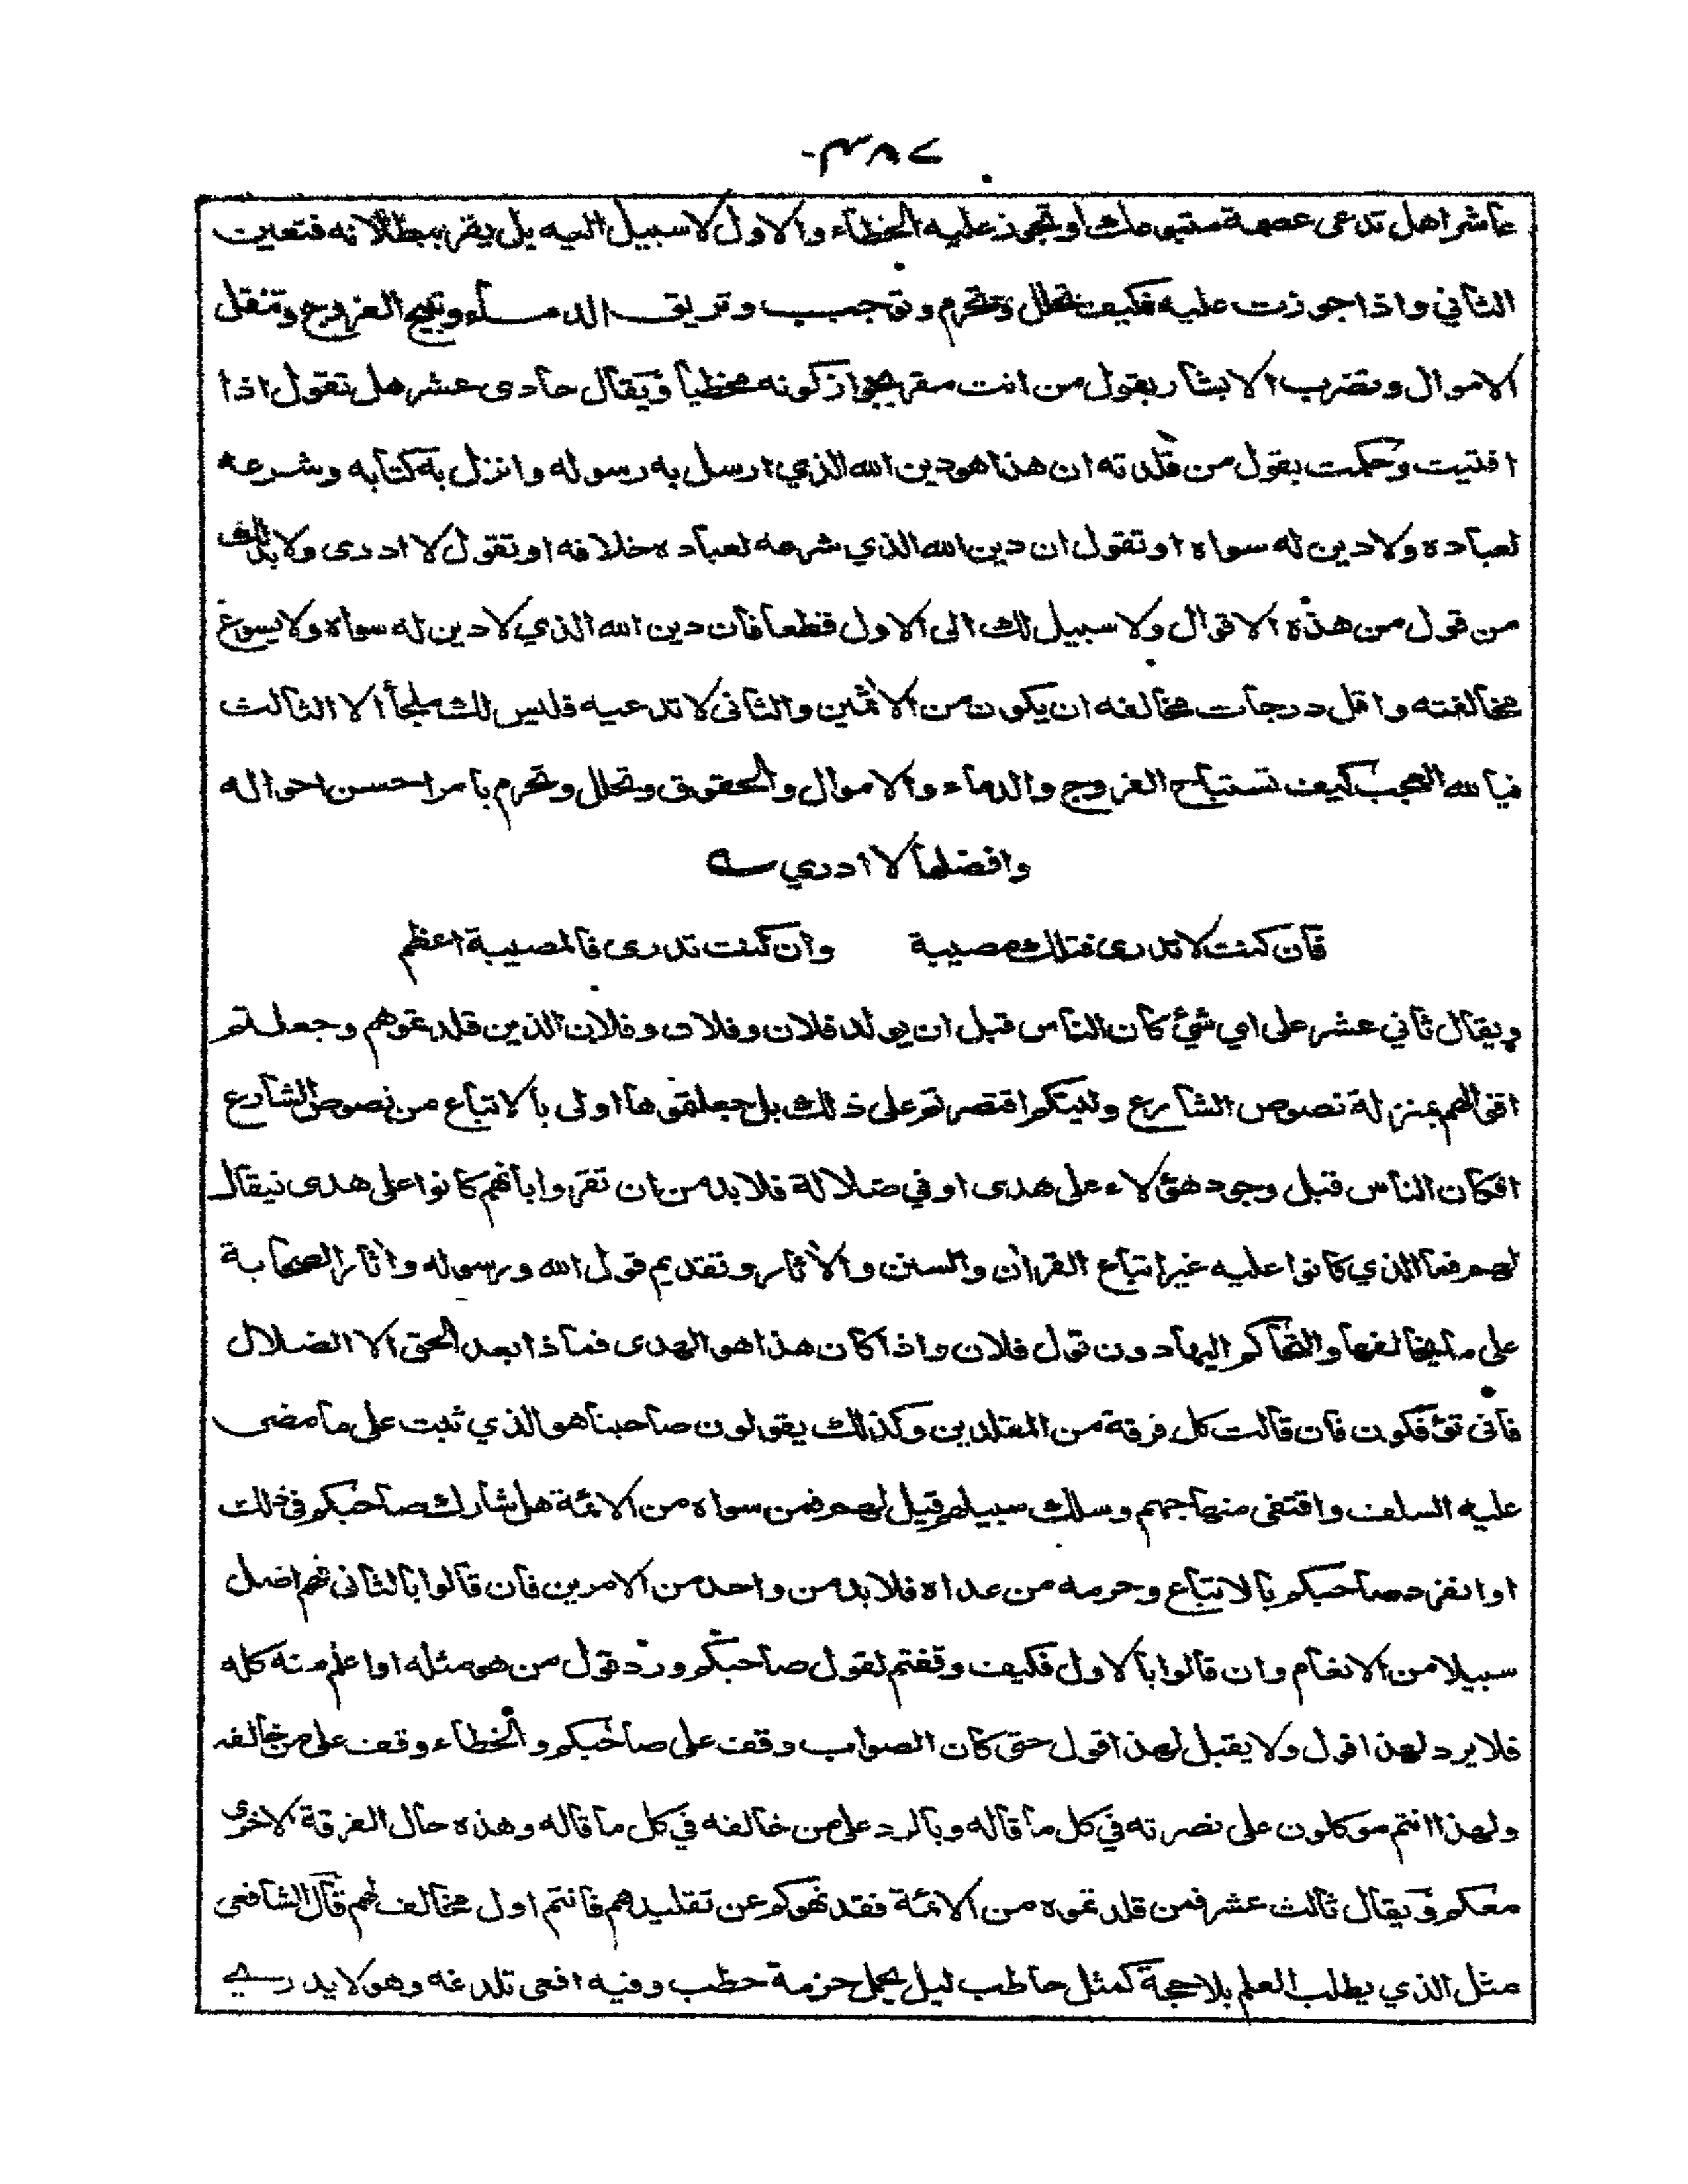 ٣٨٧
عاشرا هل تدعى عصمة متبوعك او تجوز عليه الخطاء والاول لا سبيل اليه بل يقر ببطلانه فتعين
الثاني واذا جوزت عليه فكيف تحلل وتحرم وتوجب وتريق الدماء وتبيح الفروج وتنقل
الاموال وتضرب الابشار بقول من انت مقر بجواز كونه مخطيا ويقال حادى عشر هل تقول اذا
افتيت وحكمت بقول من قلدته ان هذا هو دين الله الذي ارسل به رسوله وانزل به كتابه وشرعه
لعباده ولا دين له سواه او تقول ان دين الله الذي شرعه لعباده خلافه او تقول لا ادرى ولا بد لك
من قول من هذه الاقوال ولا سبيل لك الى الاول قطعا فان دين الله الذي لا دين له سواه ولا يسوغ
مخالفته واقل درجات مخالفه ان يكون من الاثمين والثانى لا تدعيه فليس لك ملجأ الا الثالث
فيا لله العجب كيف تستباح الفروج والدماء والاموال والحقوق وتحلل وتحرم بامر احسن احواله
وافضلها لا ادري
فان كنت لا تدرى فتلك مصيبة وان كنت تدرى فالمصيبة اعظم
ويقال ثاني عشر على اي شئ كان الناس قبل ان يولد فلان وفلان وفلان الذين قلدتموهم وجعلتم
اقوالهم بمنزلة نصوص الشارع وليتكم اقتصرتم على ذلك بل جعلتموها اولى بالاتباع من نصوص الشارع
افكان الناس قبل وجود هؤلاء على هدى او في ضلالة فلا بد من ان تقروا بانهم كانوا على هدى فيقال
لهم فما الذي كانوا عليه غير اتباع القرآن والسنن والآثار وتقديم قول الله ورسوله وآثار الصحابة
على ما يخالفها والتحاكم اليها دون قول فلان واذا كان هذا هو الهدى فماذا بعد الحق الا الضلال
فانى تؤفكون فان قالت كل فرقة من المقلدين وكذلك يقولون صاحبنا هو الذي ثبت على ما مضى
عليه السلف واقتفى منهاجهم وسلك سبيلهم قيل لهم فمن سواه من الائمة هل شارك صاحبكم في ذلك
او انفرد صاحبكم بالاتباع وحرمه من عداه فلا بد من واحد من الامرين فان قالوا بالثانى فهم اضل
سبيلا من الانعام وان قالوا بالاول فكيف وقفتم لقول صاحبكم ورد قول من هو مثله او اعلم منه كله
فلا يرد لهذا قول ولا يقبل لهذا قول حتى كان الصواب وقف على صاحبكم والخطاء وقف على من خالفه
ولهذا انتم موكلون على نصرته في كل ما قاله وبالرد على من خالفه في كل ما قاله وهذه حال الفرقة الاخرى
معكم ويقال ثالث عشر فمن قلدتموه من الائمة فقد نهوكم عن تقليدهم فانتم اول مخالف لهم قال الشافعى
مثل الذي يطلب العلم بلا حجة كمثل حاطب ليل يحمل حزمة حطب وفيه افعى تلدغه وهو لا يدرى